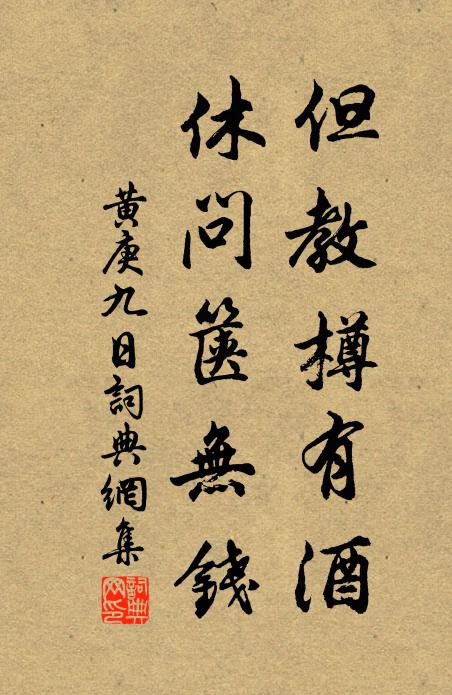 但教樽有酒
休問篋無錢
黃庚九日詞典網集
詞典网印